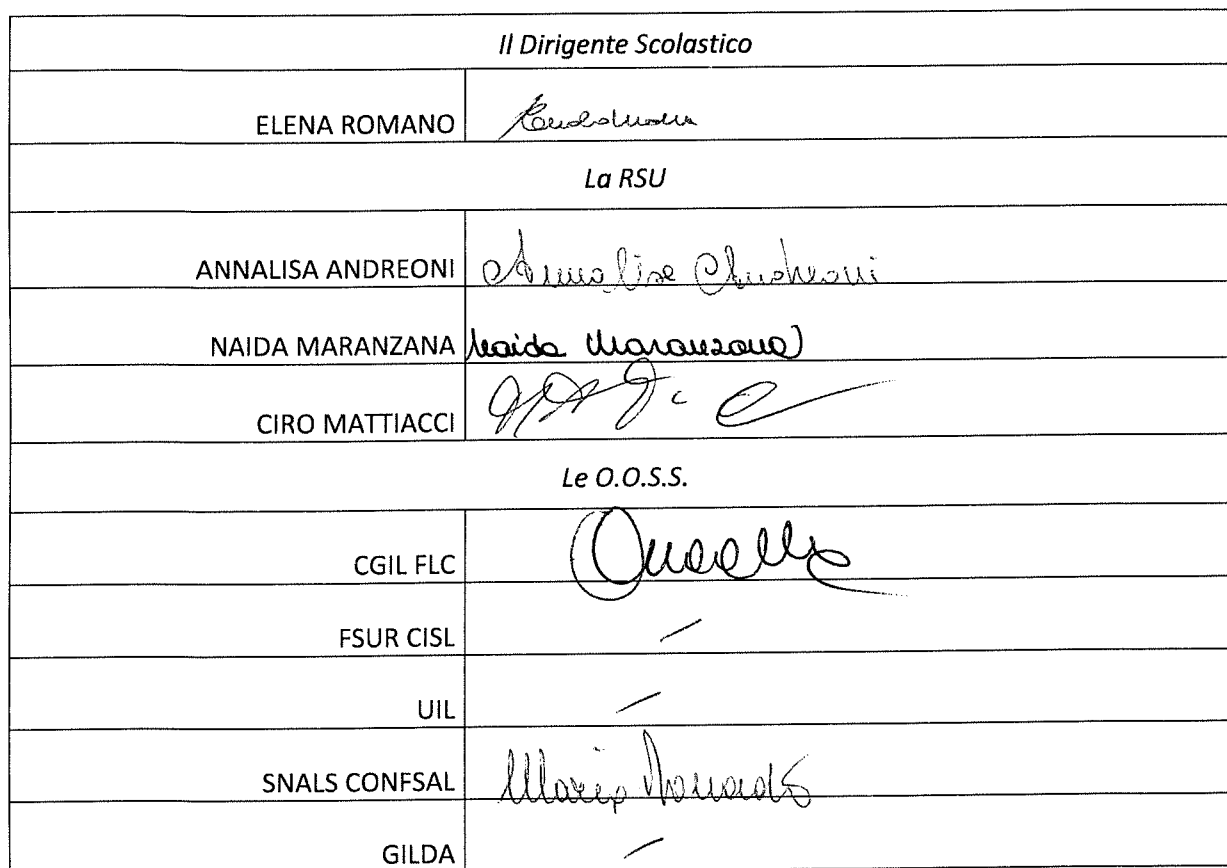 Il Dirigente Scolastico
ELENA ROMANO
La RSU
ANNALISA ANDREONI Annalisa Andreoni
NAIDA MARANZANA Naida Maranzana
CIRO MATTIACCI
Le O.O.S.S.
CGIL FLC
FSUR CISL –
UIL –
SNALS CONFSAL
GILDA –